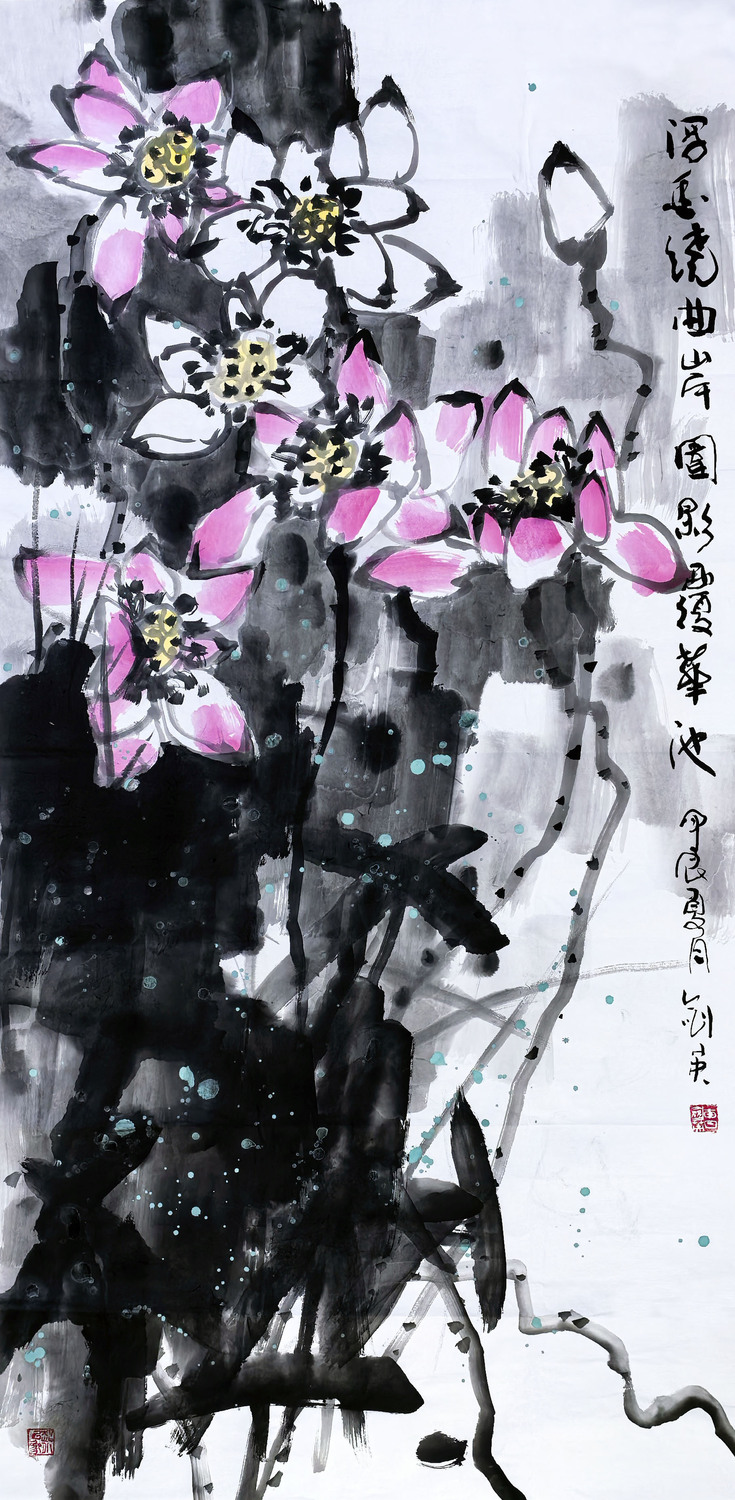 浮香绕曲岸圆影覆華池
甲辰夏月